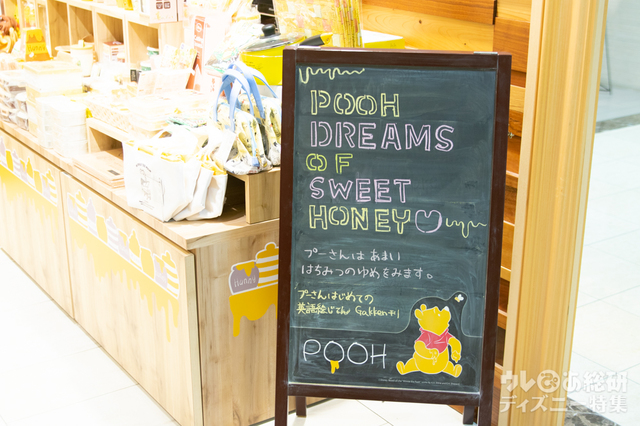 POOH
DREAMS
OF
SWEET
HONEY
プーさんは あまい
はちみつのゆめをみます。
プーさんはじめての
英語絵じてん Gakkenより
POOH
Hunny
ウレぴあ総研
ディズニー特集